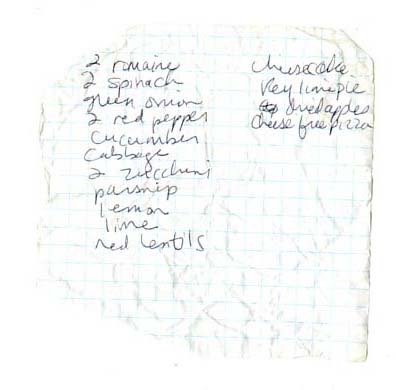 2 romaine
2 spinach
green onion
2 red pepper
cucumber
cabbage
2 zucchini
parsnip
lemon
lime
red lentils
cheesecake
key lime pie
dried apples
cheese free pizza